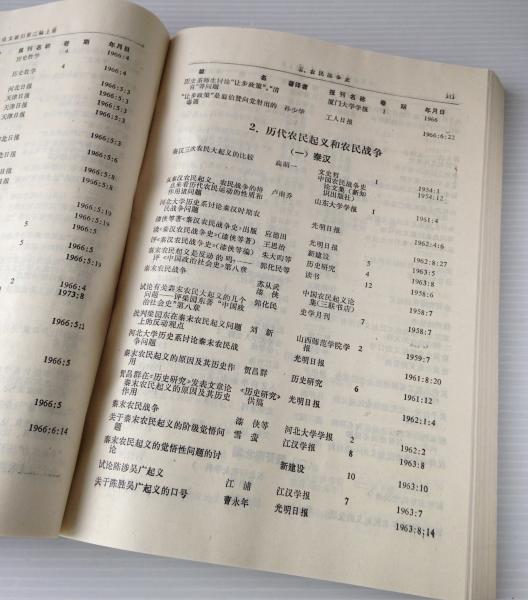 报刊名称 卷 期 年月日
历史教学 4 1966:4
历史教学 4 1966:4
江汉日报 1966:5:3
天津日报 1966:5:3
天津日报 1966:5:3
天津日报
1966:5:5
1966:5:8
1966:5:19
1966:5:19
1966:5
1966:5:19
2 1966:4
1973:8
1966:5:11
1966:5
1966:5
1966:6:14
五、农民战争史 313
题 名 著译者 报刊名称 卷 期 年月日
历史系师生讨论“让步政策”、“清官”等问题 厦门大学学报 1 1966
“让步政策”是翦伯赞向党射出的毒箭 孙少华 工人日报 1966:6:22
2．历代农民起义和农民战争
（一）秦汉
秦汉三次农民大起义的比较 高昭一 文史哲 1 1954:1
中国农民战争史论文集（新知识出版社） 1954:12
从秦汉农民起义、农民战争的特点来看历代农民运动的性质和作用诸问题 卢南乔 山东大学学报 1 1961:4
河北大学历史系讨论秦汉时期农民战争问题 光明日报 1962:4:6
漆侠等著《秦汉农民战争史》出版 应德田 光明日报 1962:8:27
读《秦汉农民战争史》（漆侠等著） 王思治 新建设 5 1963:5
评《秦汉农民战争史》（漆侠等编） 朱大昀等 历史研究 4 1963:8
秦末农民起义是反动的吗？——评《中国政治社会史》第八章 郭化民等 读书 12 1958:6
秦末农民战争 苏从武 漆侠 中国农民起义论集（三联书店） 1958:7
试论有关秦末农民大起义的几个问题——评梁园东著“中国政治社会史”第八章 郭化民 史学月刊 7 1958:7
批判梁园东在秦末农民起义问题上的反动观点 刘新 山西师范学院学报 2 1959:7
河北大学历史系讨论秦末农民战争问题 光明日报 1961:8:20
秦末农民起义的原因及其历史作用 贺昌群 历史研究 6 1961:12
贺昌群在《历史研究》发表文章论秦末农民起义的原因及其历史作用 《历史研究》供稿 光明日报 1962:1:4
秦末农民战争 漆侠等 河北大学学报 2 1962:2
关于秦末农民起义的阶级觉悟问题 雪莹 江汉学报 8 1963:8
秦末农民起义的觉悟性问题的讨论 新建设 10 1963:10
试论陈涉吴广起义 江浦 江汉学报 7 1963:7
关于陈胜吴广起义的口号 曹永年 光明日报 1963:8:14